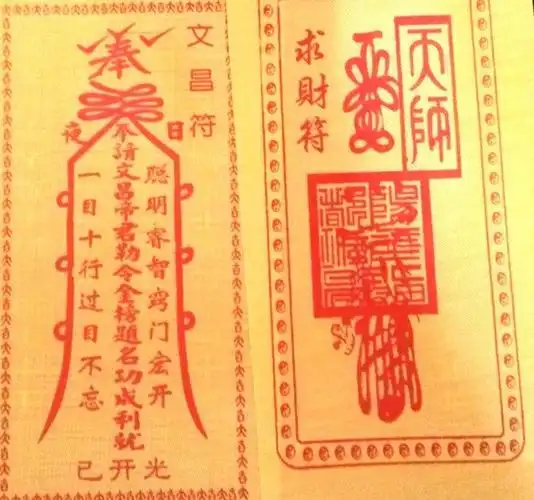 文昌符
奉
日
夜
聪明睿智窍门宏开
請文昌帝君勒令金榜題名功成利就
一目十行过目不忘
已开光
天師
求財符